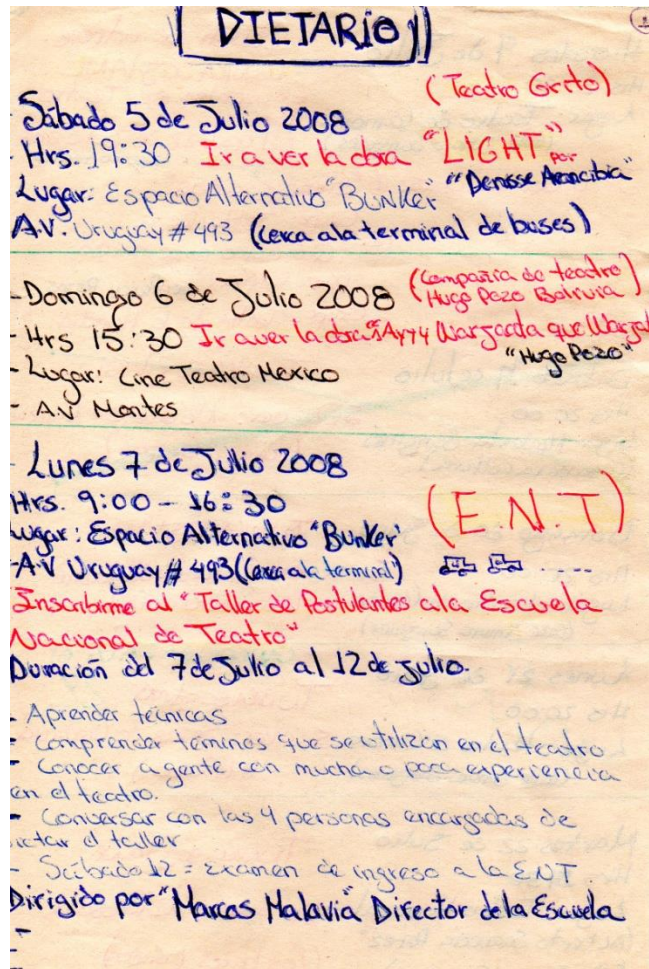 DIETARIO
1
(Teatro Grito)
- Sábado 5 de Julio 2008
- Hrs. 19:30 Ir a ver la obra "LIGHT" por
Lugar: Espacio Alternativo "BUNKER" "Denisse Arancibia"
A.V. Uruguay # 493 (cerca a la terminal de buses)
- Domingo 6 de Julio 2008 (Compañia de teatro
Hugo Pozo Bolivia)
- Hrs 15:30 Ir a ver la obra
"Hugo Pozo"
- Lugar: Cine Teatro Mexico
- A.V Montes
- Lunes 7 de Julio 2008
Hrs. 9:00 - 16:30 (E.N.T)
Lugar: Espacio Alternativo "Bunker"
- A.V Uruguay # 493 (cerca a la terminal)
Inscribirme al "Taller de Postulantes a la Escuela
Nacional de Teatro"
Duración del 7 de Julio al 12 de Julio.
- Aprender técnicas
- Comprender términos que se utilizan en el teatro
- Conocer a gente con mucha o poca experiencia
en el teatro.
- Conversar con las 4 personas encargadas de
dictar el taller
- Sábado 12 = examen de ingreso a la ENT
Dirigido por "Marcos Malavia" Director de la Escuela